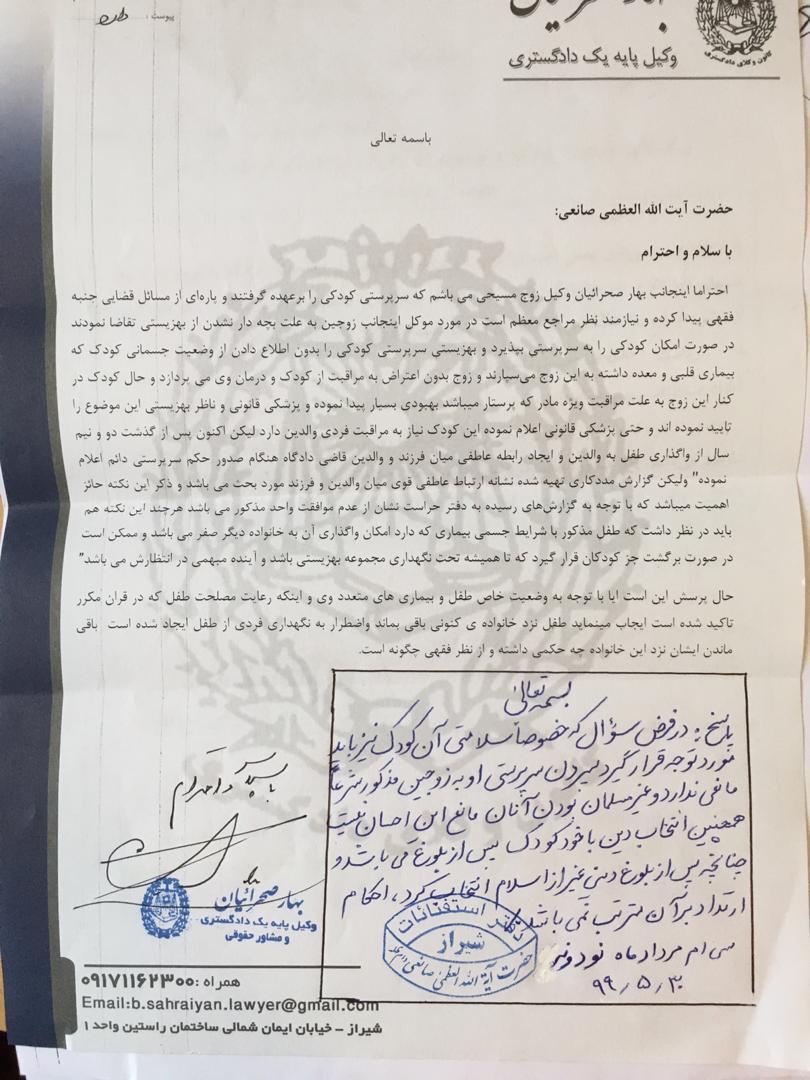 پیوست:
وکیل پایه یک دادگستری
کانون وکلای دادگستری
باسمه تعالی
حضرت آیت الله العظمی صانعی:
با سلام و احترام
احتراما اینجانب بهار صحرائیان وکیل زوج مسیحی می باشم که سرپرستی کودکی را برعهده گرفتند و پاره‌ای از مسائل قضایی جنبه
فقهی پیدا کرده و نیازمند نظر مراجع معظم است در مورد موکل اینجانب زوجین به علت بچه دار نشدن از بهزیستی تقاضا نمودند
در صورت امکان کودکی را به سرپرستی بپذیرد و بهزیستی سرپرستی کودکی را بدون اطلاع دادن از وضعیت جسمانی کودک که
بیماری قلبی و معده داشته به این زوج می‌سپارند و زوج بدون اعتراض به مراقبت از کودک و درمان وی می پردازد و حال کودک در
کنار این زوج به علت مراقبت ویژه مادر که پرستار میباشد بهبودی بسیار پیدا نموده و پزشکی قانونی و ناظر بهزیستی این موضوع را
تایید نموده اند و حتی پزشکی قانونی اعلام نموده این کودک نیاز به مراقبت فردی والدین دارد لیکن اکنون پس از گذشت دو و نیم
سال از واگذاری طفل به والدین و ایجاد رابطه عاطفی میان فرزند و والدین قاضی دادگاه هنگام صدور حکم سرپرستی دائم اعلام
نموده" ولیکن گزارش مددکاری تهیه شده نشانه ارتباط عاطفی قوی میان والدین و فرزند مورد بحث می باشد و ذکر این نکته حائز
اهمیت میباشد که با توجه به گزارش‌های رسیده به دفتر حراست نشان از عدم موافقت واحد مذکور می باشد هرچند این نکته هم
باید در نظر داشت که طفل مذکور با شرایط جسمی بیماری که دارد امکان واگذاری آن به خانواده دیگر صفر می باشد و ممکن است
در صورت برگشت جز کودکان قرار گیرد که تا همیشه تحت نگهداری مجموعه بهزیستی باشد و آینده مبهمی در انتظارش می باشد"
حال پرسش این است ایا با توجه به وضعیت خاص طفل و بیماری های متعدد وی و اینکه رعایت مصلحت طفل که در قران مکرر
تاکید شده است ایجاب مینماید طفل نزد خانواده ی کنونی باقی بماند واضطرار به نگهداری فردی از طفل ایجاد شده است باقی
ماندن ایشان نزد این خانواده چه حکمی داشته و از نظر فقهی چگونه است.
بسمه تعالی
پاسخ: در فرض سؤال که خصوصاً سلامتی آن کودک نیز باید
مورد توجه قرار گیرد سپردن سرپرستی او به زوجین مذکور شرعاً
مانعی ندارد و غیر مسلمان بودن آنان مانع این احسان نیست
همچنین انتخاب دین با خود کودک پس از بلوغ می باشد و
چنانچه پس از بلوغ دینی غیر از اسلام انتخاب کرد، احکام
ارتداد بر آن مترتب نمی باشد.
سی ام مرداد ماه نود و نه
۹۹/۵/۳۰
دفتر استفتائات
شیراز
حضرت آیة الله العظمی صانعی
با سپاس و احترام
بهار صحرائیان
وکیل پایه یک دادگستری
و مشاور حقوقی
همراه: ۰۹۱۷۱۱۶۲۳۰۰
Email:b.sahraiyan.lawyer@gmail.com
شیراز – خیابان ایمان شمالی ساختمان راستین واحد ۱